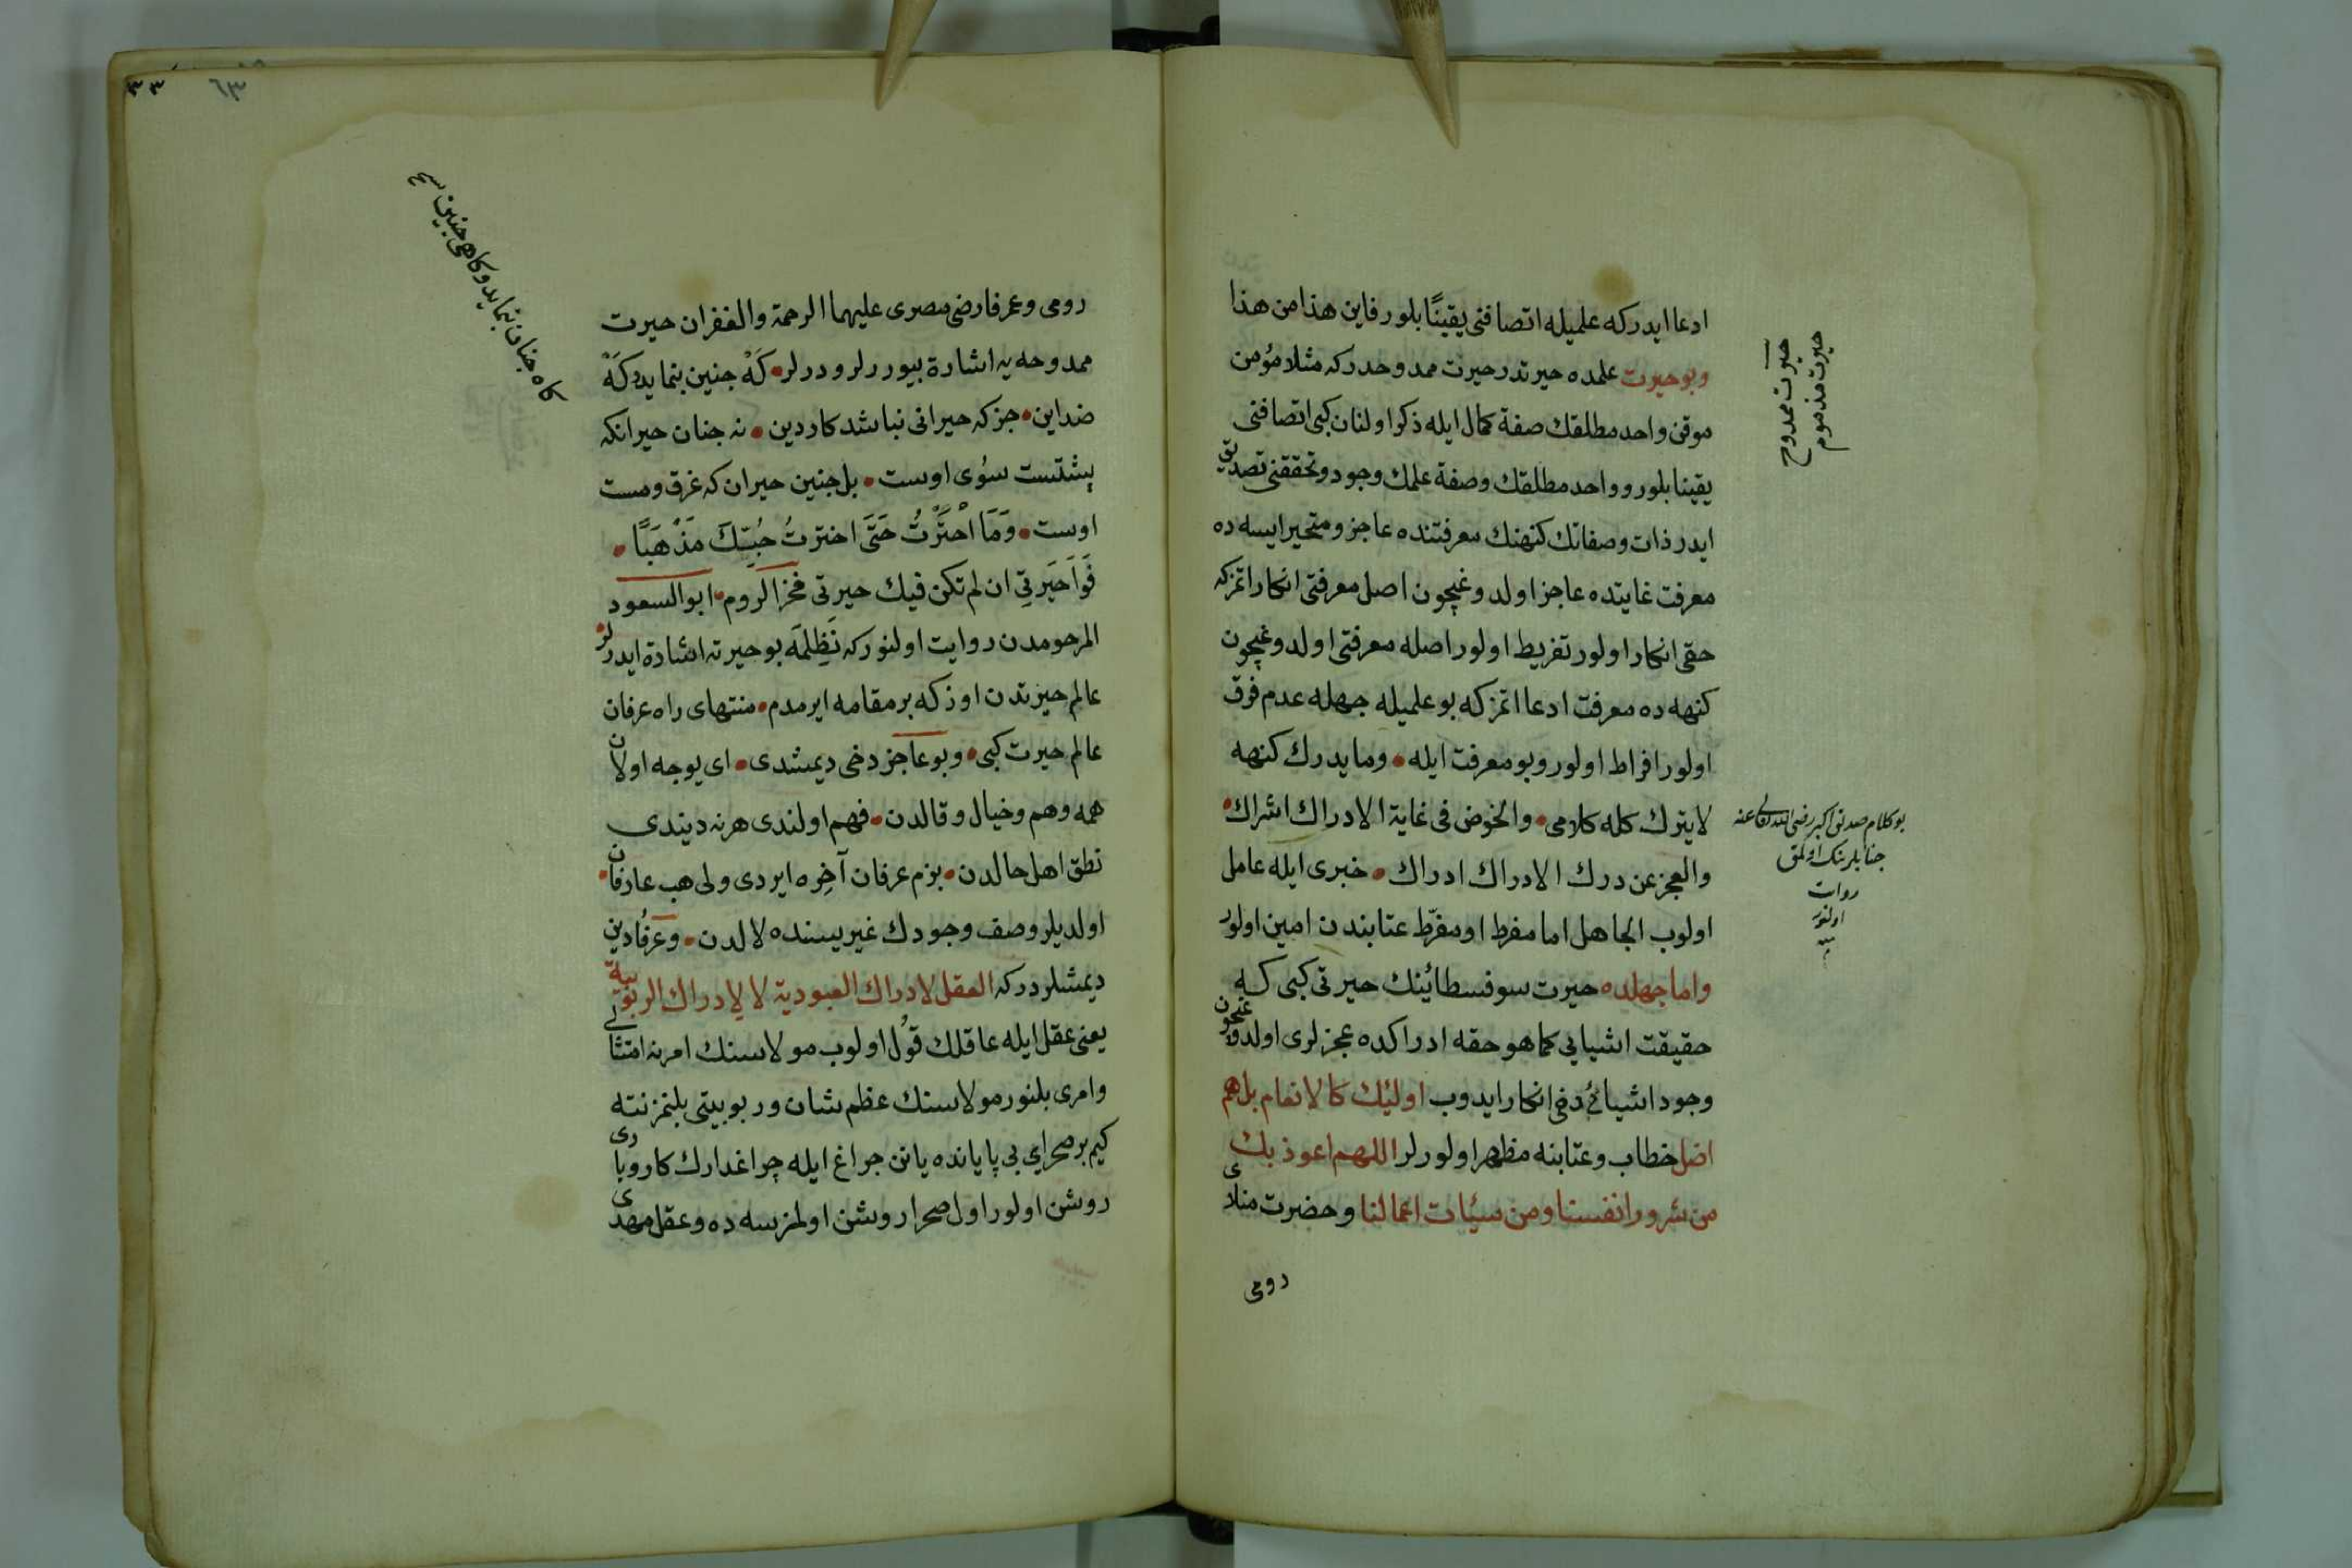 ادعا ايدر كه علميله اتصافنى يقينًا بلور فاين هذا من هذا
وبو حيرت علمده حيرتدر حيرت ممدوحدر كه مثلا مؤمن
موقن واحد مطلقك صفة كمال ايله ذكر اولنان كبى اتصافنى
يقينا بلور و واحد مطلقك وصفة علمك وجود وتحققنى تصديق
ايدر ذات وصفاتك كنهنك معرفتنده عاجز ومتحير ايسه ده
معرفت غايتده عاجز اولدوغيچون اصل معرفتى انكار اتمز كه
حقى انكار اولور تفريط اولور اصله معرفتى اولدوغيچون
كنهه ده معرفت ادعا اتمز كه بو علميله جهله عدم فرق
اولور افراط اولور وبو معرفت ايله • وما يدرك كنهه
لا يترك كله كلامى • والخوض فى غاية الادراك اشراك •
والعجز عن درك الادراك ادراك • خبرى ايله عامل
اولوب الجاهل اما مفرط او مفرّط عتابندن امين اولور
واما جهلده حيرت سوفسطائينك حيرتى كبى كه
حقيقت اشيايى كما هو حقه ادراكده عجزلرى اولدوغيچون
وجود اشيائى دخى انكار ايدوب اوليك كالانعام بل هم
اضل خطاب وعتابنه مظهر اولورلر اللهم اعوذ بك
من شرور انفسنا ومن سيئات اعمالنا وحضرت منلاى
رومى
حيرت ممدوح
حيرت مذموم
بو كلام صديق اكبر رضى الله تعالى عنه
جنابلرينك اولمق
روات
اولنور
٣٣
٦٣
رومى وعمر فارضى مصرى عليهما الرحمة والغفران حيرت
ممدوحه يه اشارة بيوررلر و درلر • كَهْ جنين بنمايد و كَهْ
ضد اين • جز كه حيرانى نباشد كار دين • نه جنان حيرانكه
پشتست سُوى اوست • بل جنين حيران كه غرق ومست
اوست • وَمَا احْتَرْتُ حَتَّى اخترتُ حُبّيكَ مَذْهَبًا •
فَوَاحَيرتِي ان لم تكن فيك حيرتى فخر الروم • ابو السعود
المرحومدن روايت اولنور كه نَظِلمَه بو حيرته اشارة ايدرلر
عالم حيرتدن اوزكه بر مقامه ايرمدم • منتهاى راه عرفان
عالم حيرت كبى • وبو عاجز دخى ديمشدى • اى يوجه اولان
همه وهم وخيال و قالدن • فهم اولندى هرنه ديندى
نطق اهل حالدن • بزم عرفان آخِره ايردى ولى هب عارفان •
اولديلر وصف وجودك غيريسنده لالدن • وعرفُا دين
ديمشلردر كه العقل لادراك العبودية لا لادراك الربوبية
يعنى عقل ايله عاقلك قوُل اولوب مولاسنك امرنه امتثالى
وامرى بلنور مولاسنك عظم شان وربوبيتى بلنمز نته
كيم بر صحراى بى پايانده يانن چراغ ايله چراغدارك كاروبارى
روشن اولور اول صحرا روشن اولمز سه ده وعقل مهدى
كاه جنان بنمايد و كاهى جنين